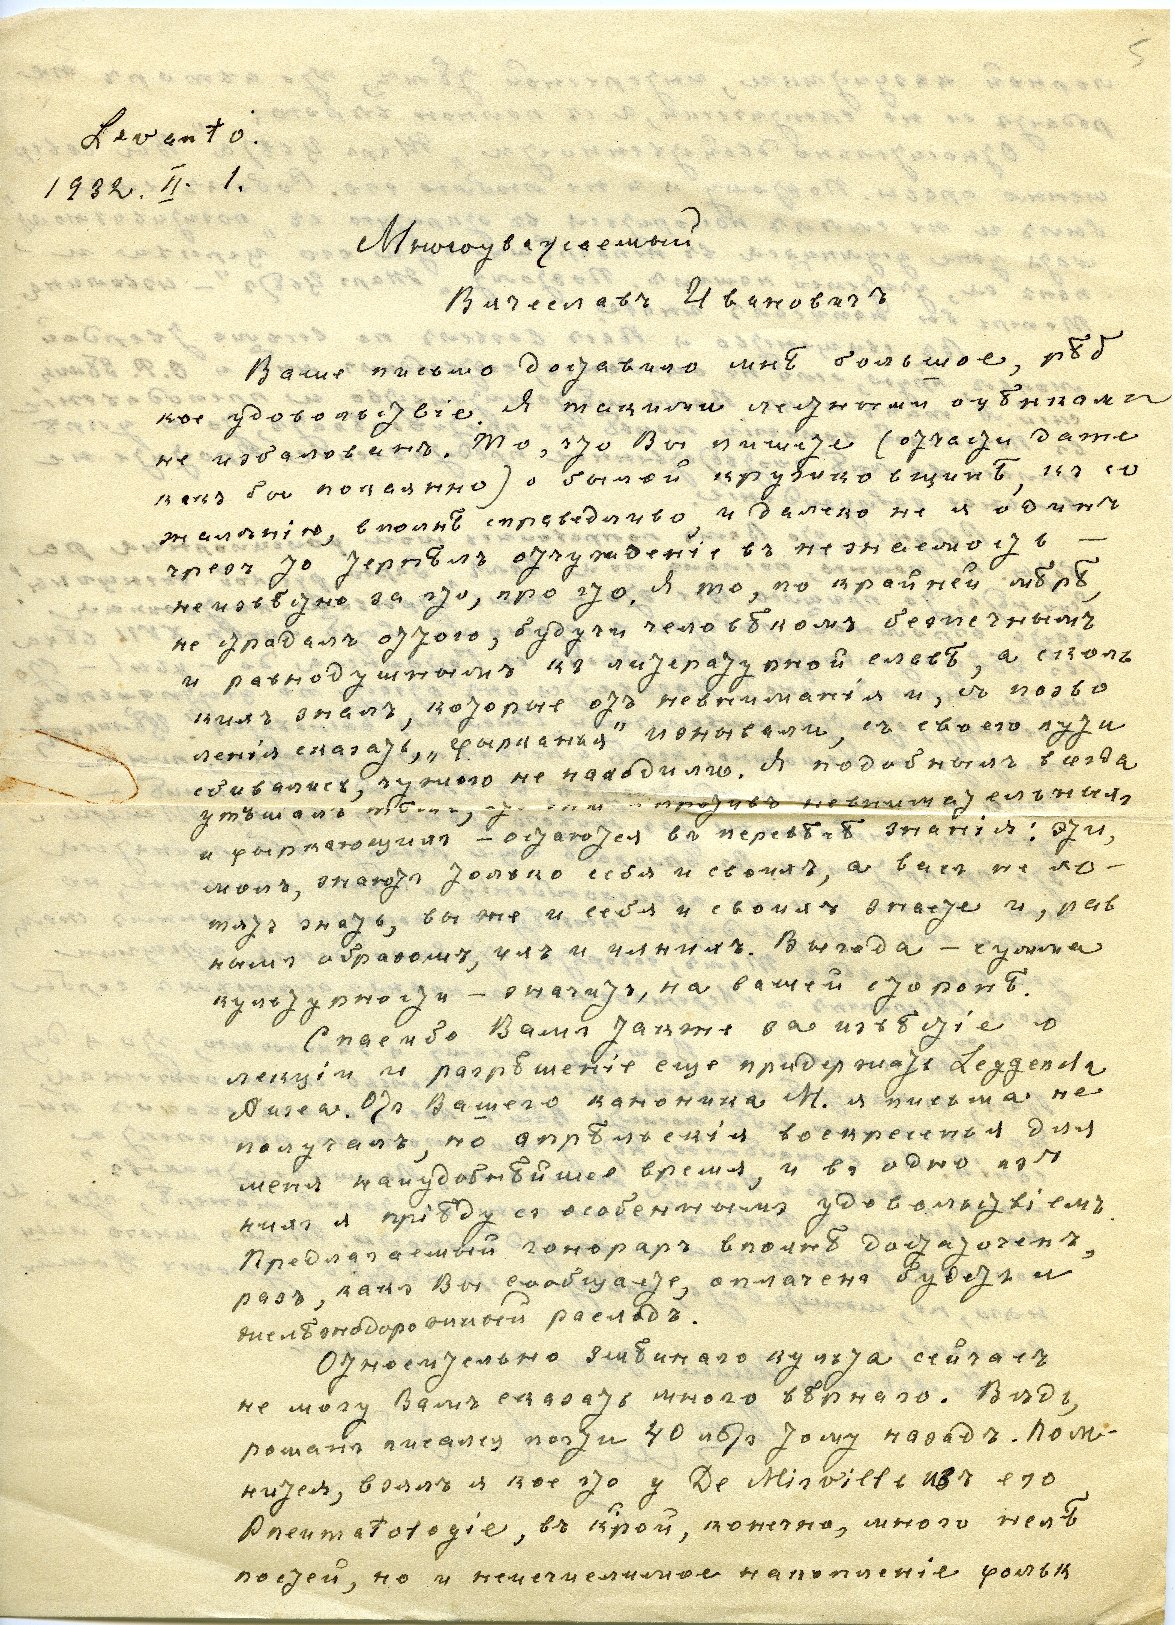 5
Levanto.
1932. II. 1.
Многоуважаемый
Вячеславъ Ивановичъ
Ваше письмо доставило мнѣ большое, рѣд
кое удовольствіе. Я такими лестными оцѣнками
не избалованъ. То, что Вы пишете (отчасти даже
какъ бы покаянно) о былой кружковщинѣ, къ со
жалѣнію, вполнѣ справедливо, и далеко не я одинъ
чрезъ то терпѣлъ отчужденіе въ незнаемость —
неизвѣстно за что, про что. Я то, по крайней мѣрѣ,
не страдалъ оттого, будучи человѣкомъ безпечнымъ
и равнодушнымъ къ литературной славѣ, а сколь
кихъ зналъ, которые отъ невниманія и, съ позво
ленія сказать, „фырканья" изнывали, съ своего пути
сбивались, чужого не находило. Я подобныхъ всегда
утѣшалъ тѣмъ, что они противъ невнимательныхъ
и фыркающихъ — остаются въ перевѣсѣ знанія: эти,
молъ, знаютъ только себя и своихъ, а васъ не хо-
тятъ знать, вы же и себя и своихъ знаете и, рав
нымъ образомъ, ихъ и ихнихъ. Выгода — сумма
культурности — значитъ, на вашей сторонѣ.
Спасибо Вамъ также за извѣстіе о
лекціи и разрѣшеніе еще придержать Leggenda
Aurea. Отъ Вашего каноника М. я письма не
получалъ, но апрѣльскія воскресенья для
меня наиудобнѣйшее время, и въ одно изъ
нихъ я пріѣду съ особеннымъ удовольствіемъ.
Предлагаемый гонораръ вполнѣ достаточенъ,
разъ, какъ Вы сообщаете, оплаченъ будетъ и
желѣзнодорожный расходъ.
Относительно змѣинаго культа сейчасъ
не могу Вамъ сказать много вѣрнаго. Вѣдь,
романъ писался почти 40 лѣтъ тому назадъ. Пом-
нится, взялъ я кое что у De Mirville изъ его
Pneumatologie, въ к'рой, конечно, много нелѣ
постей, но и неисчислимое накопленіе фольк